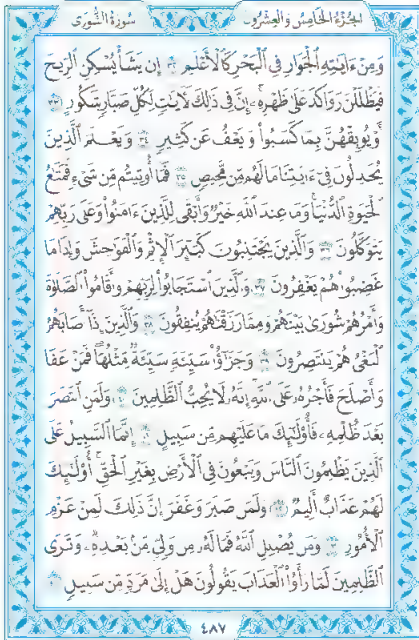 الجزء الخامس والعشرون سورة الشورى
وَمِنْ ءَايَٰتِهِ ٱلْجَوَارِ فِى ٱلْبَحْرِ كَٱلْأَعْلَٰمِ ٣٢ إِن يَشَأْ يُسْكِنِ ٱلرِّيحَ
فَيَظْلَلْنَ رَوَاكِدَ عَلَىٰ ظَهْرِهِۦٓ إِنَّ فِى ذَٰلِكَ لَءَايَٰتٍ لِّكُلِّ صَبَّارٍ شَكُورٍ ٣٣
أَوْ يُوبِقْهُنَّ بِمَا كَسَبُوا۟ وَيَعْفُ عَن كَثِيرٍ ٣٤ وَيَعْلَمَ ٱلَّذِينَ
يُجَٰدِلُونَ فِىٓ ءَايَٰتِنَا مَا لَهُم مِّن مَّحِيصٍ ٣٥ فَمَآ أُوتِيتُم مِّن شَىْءٍ فَمَتَٰعُ
ٱلْحَيَوٰةِ ٱلدُّنْيَا وَمَا عِندَ ٱللَّهِ خَيْرٌ وَأَبْقَىٰ لِلَّذِينَ ءَامَنُوا۟ وَعَلَىٰ رَبِّهِمْ
يَتَوَكَّلُونَ ٣٦ وَٱلَّذِينَ يَجْتَنِبُونَ كَبَٰٓئِرَ ٱلْإِثْمِ وَٱلْفَوَٰحِشَ وَإِذَا مَا
غَضِبُوا۟ هُمْ يَغْفِرُونَ ٣٧ وَٱلَّذِينَ ٱسْتَجَابُوا۟ لِرَبِّهِمْ وَأَقَامُوا۟ ٱلصَّلَوٰةَ
وَأَمْرُهُمْ شُورَىٰ بَيْنَهُمْ وَمِمَّا رَزَقْنَٰهُمْ يُنفِقُونَ ٣٨ وَٱلَّذِينَ إِذَآ أَصَابَهُمُ
ٱلْبَغْىُ هُمْ يَنتَصِرُونَ ٣٩ وَجَزَٰٓؤُا۟ سَيِّئَةٍ سَيِّئَةٌ مِّثْلُهَا فَمَنْ عَفَا
وَأَصْلَحَ فَأَجْرُهُۥ عَلَى ٱللَّهِ إِنَّهُۥ لَا يُحِبُّ ٱلظَّٰلِمِينَ ٤٠ وَلَمَنِ ٱنتَصَرَ
بَعْدَ ظُلْمِهِۦ فَأُو۟لَٰٓئِكَ مَا عَلَيْهِم مِّن سَبِيلٍ ٤١ إِنَّمَا ٱلسَّبِيلُ عَلَى
ٱلَّذِينَ يَظْلِمُونَ ٱلنَّاسَ وَيَبْغُونَ فِى ٱلْأَرْضِ بِغَيْرِ ٱلْحَقِّ أُو۟لَٰٓئِكَ
لَهُمْ عَذَابٌ أَلِيمٌ ٤٢ وَلَمَن صَبَرَ وَغَفَرَ إِنَّ ذَٰلِكَ لَمِنْ عَزْمِ
ٱلْأُمُورِ ٤٣ وَمَن يُضْلِلِ ٱللَّهُ فَمَا لَهُۥ مِن وَلِىٍّ مِّنۢ بَعْدِهِۦ وَتَرَى
ٱلظَّٰلِمِينَ لَمَّا رَأَوُا۟ ٱلْعَذَابَ يَقُولُونَ هَلْ إِلَىٰ مَرَدٍّ مِّن سَبِيلٍ ٤٤
٤٨٧